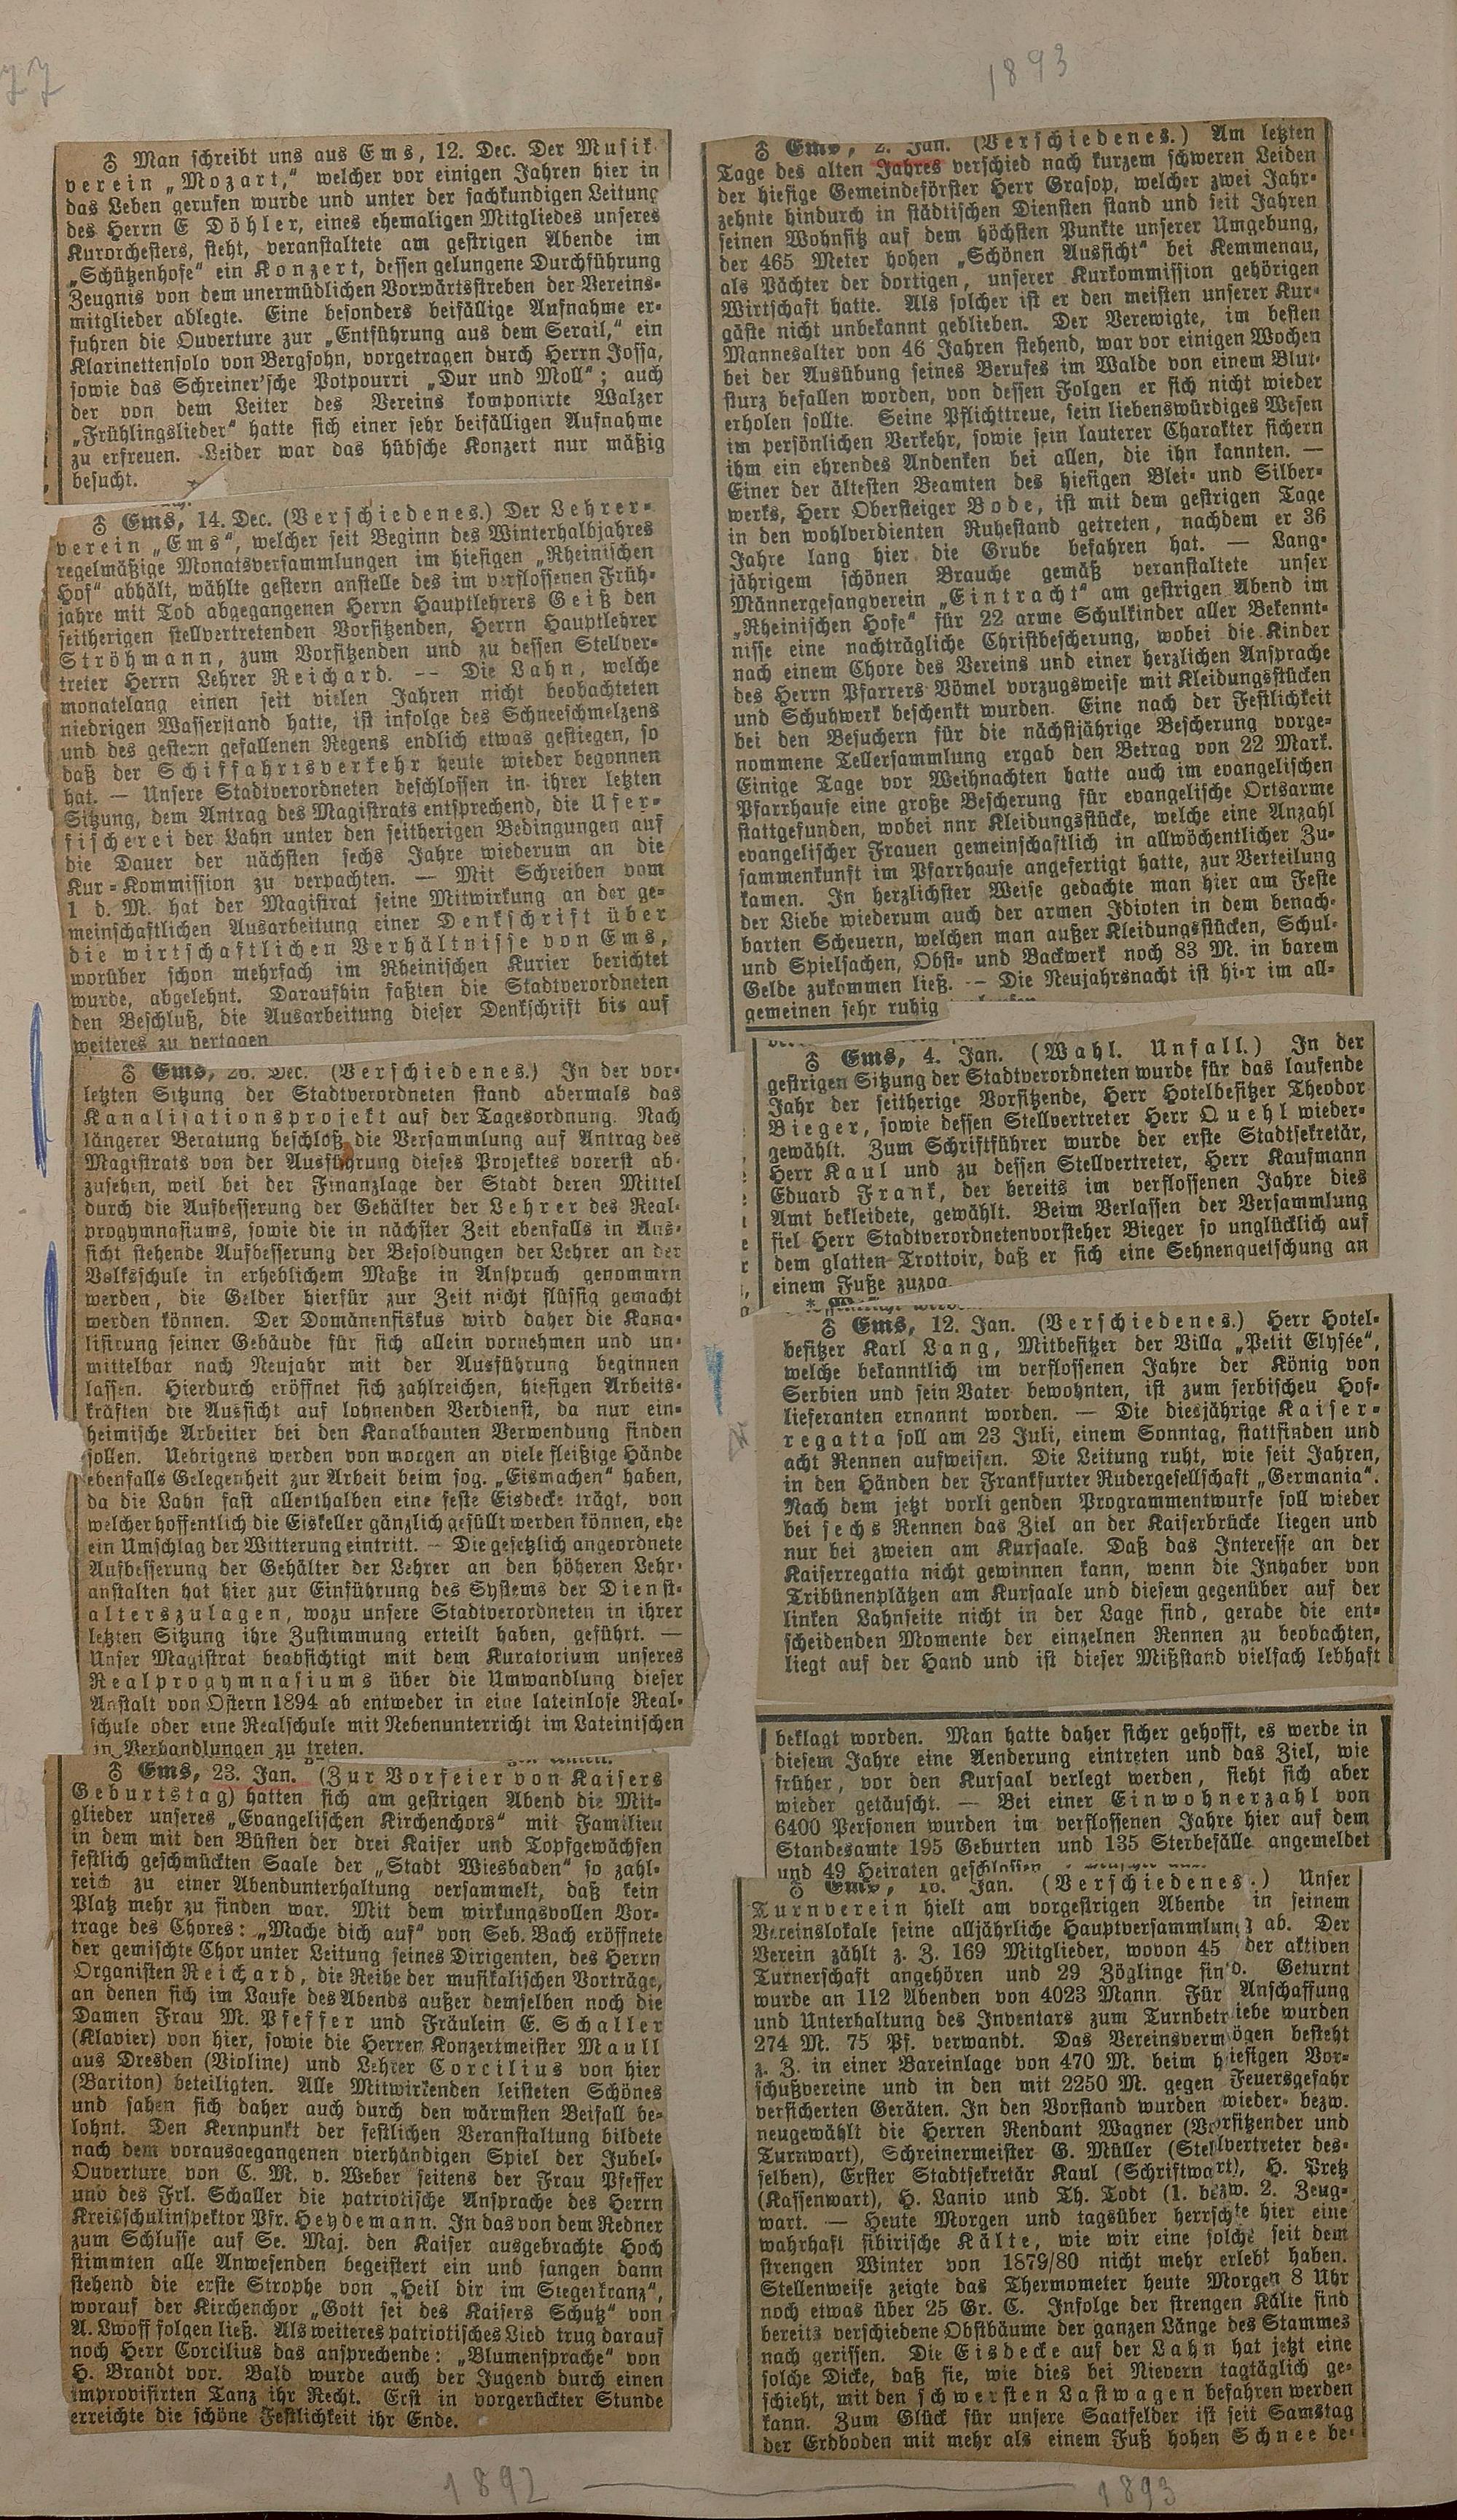 77
1893
♁ Man schreibt uns aus Ems, 12. Dec. Der Musik-
verein „Mozart,“ welcher vor einigen Jahren hier in
das Leben gerufen wurde und unter der sachkundigen Leitung
des Herrn E Döhler, eines ehemaligen Mitgliedes unseres
Kurorchesters, steht, veranstaltete am gestrigen Abende im
„Schützenhofe“ ein Konzert, dessen gelungene Durchführung
Zeugnis von dem unermüdlichen Vorwärtsstreben der Vereins-
mitglieder ablegte. Eine besonders beifällige Aufnahme er-
fuhren die Ouverture zur „Entführung aus dem Serail,“ ein
Klarinettensolo von Bergsohn, vorgetragen durch Herrn Jossa,
sowie das Schreiner'sche Potpourri „Dur und Moll“; auch
der von dem Leiter des Vereins komponirte Walzer
„Frühlingslieder“ hatte sich einer sehr beifälligen Aufnahme
zu erfreuen. Leider war das hübsche Konzert nur mäßig
besucht.
♁ Ems, 14. Dec. (Verschiedenes.) Der Lehrer-
verein „Ems“, welcher seit Beginn des Winterhalbjahres
regelmäßige Monatsversammlungen im hiesigen „Rheinischen
Hof“ abhält, wählte gestern anstelle des im verflossenen Früh-
jahre mit Tod abgegangenen Herrn Hauptlehrers Geiß den
seitherigen stellvertretenden Vorsitzenden, Herrn Hauptlehrer
Ströhmann, zum Vorsitzenden und zu dessen Stellver-
treter Herrn Lehrer Reichard. -- Die Lahn, welche
monatelang einen seit vielen Jahren nicht beobachteten
niedrigen Wasserstand hatte, ist infolge des Schneeschmelzens
und des gestern gefallenen Regens endlich etwas gestiegen, so
daß der Schiffahrtsverkehr heute wieder begonnen
hat. — Unsere Stadtverordneten beschlossen in ihrer letzten
Sitzung, dem Antrag des Magistrats entsprechend, die Ufer-
fischerei der Lahn unter den seitherigen Bedingungen auf
die Dauer der nächsten sechs Jahre wiederum an die
Kur-Kommission zu verpachten. — Mit Schreiben vom
1 d. M. hat der Magistrat seine Mitwirkung an der ge-
meinschaftlichen Ausarbeitung einer Denkschrift über
die wirtschaftlichen Verhältnisse von Ems,
worüber schon mehrfach im Rheinischen Kurier berichtet
wurde, abgelehnt. Daraufhin faßten die Stadtverordneten
den Beschluß, die Ausarbeitung dieser Denkschrift bis auf
weiteres zu vertagen
♁ Ems, 26. Dec. (Verschiedenes.) In der vor-
letzten Sitzung der Stadtverordneten stand abermals das
Kanalisationsprojekt auf der Tagesordnung. Nach
längerer Beratung beschloß die Versammlung auf Antrag des
Magistrats von der Ausführung dieses Projektes vorerst ab-
zusehen, weil bei der Finanzlage der Stadt deren Mittel
durch die Aufbesserung der Gehälter der Lehrer des Real-
progymnasiums, sowie die in nächster Zeit ebenfalls in Aus-
sicht stehende Aufbesserung der Besoldungen der Lehrer an der
Volksschule in erheblichem Maße in Anspruch genommen
werden, die Gelder hierfür zur Zeit nicht flüssig gemacht
werden können. Der Domänenfiskus wird daher die Kana-
lisirung seiner Gebäude für sich allein vornehmen und un-
mittelbar nach Neujahr mit der Ausführung beginnen
lassen. Hierdurch eröffnet sich zahlreichen, hiesigen Arbeits-
kräften die Aussicht auf lohnenden Verdienst, da nur ein-
heimische Arbeiter bei den Kanalbauten Verwendung finden
sollen. Uebrigens werden von morgen an viele fleißige Hände
ebenfalls Gelegenheit zur Arbeit beim sog. „Eismachen“ haben,
da die Lahn fast allenthalben eine feste Eisdecke trägt, von
welcher hoffentlich die Eiskeller gänzlich gefüllt werden können, ehe
ein Umschlag der Witterung eintritt. – Die gesetzlich angeordnete
Aufbesserung der Gehälter der Lehrer an den höheren Lehr-
anstalten hat hier zur Einführung des Systems der Dienst-
alterszulagen, wozu unsere Stadtverordneten in ihrer
letzten Sitzung ihre Zustimmung erteilt haben, geführt. —
Unser Magistrat beabsichtigt mit dem Kuratorium unseres
Realprogymnasiums über die Umwandlung dieser
Anstalt von Ostern 1894 ab entweder in eine lateinlose Real-
schule oder eine Realschule mit Nebenunterricht im Lateinischen
in Verhandlungen zu treten.
♁ Ems, 23. Jan. (Zur Vorfeier von Kaisers
Geburtstag) hatten sich am gestrigen Abend die Mit-
glieder unseres „Evangelischen Kirchenchors“ mit Familien
in dem mit den Büsten der drei Kaiser und Topfgewächsen
festlich geschmückten Saale der „Stadt Wiesbaden“ so zahl-
reich zu einer Abendunterhaltung versammelt, daß kein
Platz mehr zu finden war. Mit dem wirkungsvollen Vor-
trage des Chores: „Mache dich auf“ von Seb. Bach eröffnete
der gemischte Chor unter Leitung seines Dirigenten, des Herrn
Organisten Reichard, die Reihe der musikalischen Vorträge,
an denen sich im Laufe des Abends außer demselben noch die
Damen Frau M. Pfeffer und Fräulein E. Schaller
(Klavier) von hier, sowie die Herren Konzertmeister Maull
aus Dresden (Violine) und Lehrer Corcilius von hier
(Bariton) beteiligten. Alle Mitwirkenden leisteten Schönes
und sahen sich daher auch durch den wärmsten Beifall be-
lohnt. Den Kernpunkt der festlichen Veranstaltung bildete
nach dem vorausgegangenen vierhändigen Spiel der Jubel-
Ouverture von C. M. v. Weber seitens der Frau Pfeffer
und des Frl. Schaller die patriotische Ansprache des Herrn
Kreisschulinspektor Pfr. Heydemann. In das von dem Redner
zum Schlusse auf Se. Maj. den Kaiser ausgebrachte Hoch
stimmten alle Anwesenden begeistert ein und sangen dann
stehend die erste Strophe von „Heil dir im Siegerkranz“,
worauf der Kirchenchor „Gott sei des Kaisers Schutz“ von
A. Lwoff folgen ließ. Als weiteres patriotisches Lied trug darauf
noch Herr Corcilius das ansprechende: „Blumensprache“ von
H. Brandt vor. Bald wurde auch der Jugend durch einen
improvisirten Tanz ihr Recht. Erst in vorgerückter Stunde
erreichte die schöne Festlichkeit ihr Ende.
♁ Ems, 2. Jan. (Verschiedenes.) Am letzten
Tage des alten Jahres verschied nach kurzem schweren Leiden
der hiesige Gemeindeförster Herr Grasop, welcher zwei Jahr-
zehnte hindurch in städtischen Diensten stand und seit Jahren
seinen Wohnsitz auf dem höchsten Punkte unserer Umgebung,
der 465 Meter hohen „Schönen Aussicht“ bei Kemmenau,
als Pächter der dortigen, unserer Kurkommission gehörigen
Wirtschaft hatte. Als solcher ist er den meisten unserer Kur-
gäste nicht unbekannt geblieben. Der Verewigte, im besten
Mannesalter von 46 Jahren stehend, war vor einigen Wochen
bei der Ausübung seines Berufes im Walde von einem Blut-
sturz befallen worden, von dessen Folgen er sich nicht wieder
erholen sollte. Seine Pflichttreue, sein liebenswürdiges Wesen
im persönlichen Verkehr, sowie sein lauterer Charakter sichern
ihm ein ehrendes Andenken bei allen, die ihn kannten. —
Einer der ältesten Beamten des hiesigen Blei- und Silber-
werks, Herr Obersteiger Bode, ist mit dem gestrigen Tage
in den wohlverdienten Ruhestand getreten, nachdem er 36
Jahre lang hier die Grube befahren hat. — Lang-
jährigem schönen Brauche gemäß veranstaltete unser
Männergesangverein „Eintracht“ am gestrigen Abend im
„Rheinischen Hofe“ für 22 arme Schulkinder aller Bekennt-
nisse eine nachträgliche Christbescherung, wobei die Kinder
nach einem Chore des Vereins und einer herzlichen Ansprache
des Herrn Pfarrers Vömel vorzugsweise mit Kleidungsstücken
und Schuhwerk beschenkt wurden. Eine nach der Festlichkeit
bei den Besuchern für die nächstjährige Bescherung vorge-
nommene Tellersammlung ergab den Betrag von 22 Mark.
Einige Tage vor Weihnachten hatte auch im evangelischen
Pfarrhause eine große Bescherung für evangelische Ortsarme
stattgefunden, wobei nnr Kleidungsstücke, welche eine Anzahl
evangelischer Frauen gemeinschaftlich in allwöchentlicher Zu-
sammenkunft im Pfarrhause angefertigt hatte, zur Verteilung
kamen. In herzlichster Weise gedachte man hier am Feste
der Liebe wiederum auch der armen Idioten in dem benach-
barten Scheuern, welchen man außer Kleidungsstücken, Schul-
und Spielsachen, Obst- und Backwerk noch 83 M. in barem
Gelde zukommen ließ. -- Die Neujahrsnacht ist hier im all-
gemeinen sehr ruhig
♁ Ems, 4. Jan. (Wahl. Unfall.) In der
gestrigen Sitzung der Stadtverordneten wurde für das laufende
Jahr der seitherige Vorsitzende, Herr Hotelbesitzer Theodor
Bieger, sowie dessen Stellvertreter Herr Quehl wieder-
gewählt. Zum Schriftführer wurde der erste Stadtsekretär,
Herr Kaul und zu dessen Stellvertreter, Herr Kaufmann
Eduard Frank, der bereits im verflossenen Jahre dies
Amt bekleidete, gewählt. Beim Verlassen der Versammlung
fiel Herr Stadtverordnetenvorsteher Bieger so unglücklich auf
dem glatten Trottoir, daß er sich eine Sehnenquetschung an
einem Fuße zuzog
♁ Ems, 12. Jan. (Verschiedenes.) Herr Hotel-
besitzer Karl Lang, Mitbesitzer der Villa „Petit Elysée“,
welche bekanntlich im verflossenen Jahre der König von
Serbien und sein Vater bewohnten, ist zum serbischeu Hof-
lieferanten ernannt worden. — Die diesjährige Kaiser-
regatta soll am 23 Juli, einem Sonntag, stattfinden und
acht Rennen aufweisen. Die Leitung ruht, wie seit Jahren,
in den Händen der Frankfurter Rudergesellschaft „Germania“.
Nach dem jetzt vorli genden Programmentwurfe soll wieder
bei sechs Rennen das Ziel an der Kaiserbrücke liegen und
nur bei zweien am Kursaale. Daß das Interesse an der
Kaiserregatta nicht gewinnen kann, wenn die Inhaber von
Tribünenplätzen am Kursaale und diesem gegenüber auf der
linken Lahnseite nicht in der Lage sind, gerade die ent-
scheidenden Momente der einzelnen Rennen zu beobachten,
liegt auf der Hand und ist dieser Mißstand vielfach lebhaft
beklagt worden. Man hatte daher sicher gehofft, es werde in
diesem Jahre eine Aenderung eintreten und das Ziel, wie
früher, vor den Kursaal verlegt werden, sieht sich aber
wieder getäuscht. — Bei einer Einwohnerzahl von
6400 Personen wurden im verflossenen Jahre hier auf dem
Standesamte 195 Geburten und 135 Sterbefälle angemeldet
und 49 Heiraten geschlossen
♁ Ems, 16. Jan. (Verschiedenes.) Unser
Turnverein hielt am vorgestrigen Abende in seinem
Vereinslokale seine alljährliche Hauptversammlung ab. Der
Verein zählt z. Z. 169 Mitglieder, wovon 45 der aktiven
Turnerschaft angehören und 29 Zöglinge sind. Geturnt
wurde an 112 Abenden von 4023 Mann. Für Anschaffung
und Unterhaltung des Inventars zum Turnbetriebe wurden
274 M. 75 Pf. verwandt. Das Vereinsvermögen besteht
z. Z. in einer Bareinlage von 470 M. beim hiesigen Vor-
schußvereine und in den mit 2250 M. gegen Feuersgefahr
versicherten Geräten. In den Vorstand wurden wieder- bezw.
neugewählt die Herren Rendant Wagner (Vorsitzender und
Turnwart), Schreinermeister G. Müller (Stellvertreter des-
selben), Erster Stadtsekretär Kaul (Schriftwart), H. Pretz
(Kassenwart), H. Lanio und Th. Todt (1. bezw. 2. Zeug-
wart. — Heute Morgen und tagsüber herrschte hier eine
wahrhaft sibirische Kälte, wie wir eine solche seit dem
strengen Winter von 1879/80 nicht mehr erlebt haben.
Stellenweise zeigte das Thermometer heute Morgen 8 Uhr
noch etwas über 25 Gr. C. Infolge der strengen Kälte sind
bereits verschiedene Obstbäume der ganzen Länge des Stammes
nach gerissen. Die Eisdecke auf der Lahn hat jetzt eine
solche Dicke, daß sie, wie dies bei Nievern tagtäglich ge-
schieht, mit den schwersten Lastwagen befahren werden
kann. Zum Glück für unsere Saatfelder ist seit Samstag
der Erdboden mit mehr als einem Fuß hohen Schnee be-
1892 — 1893